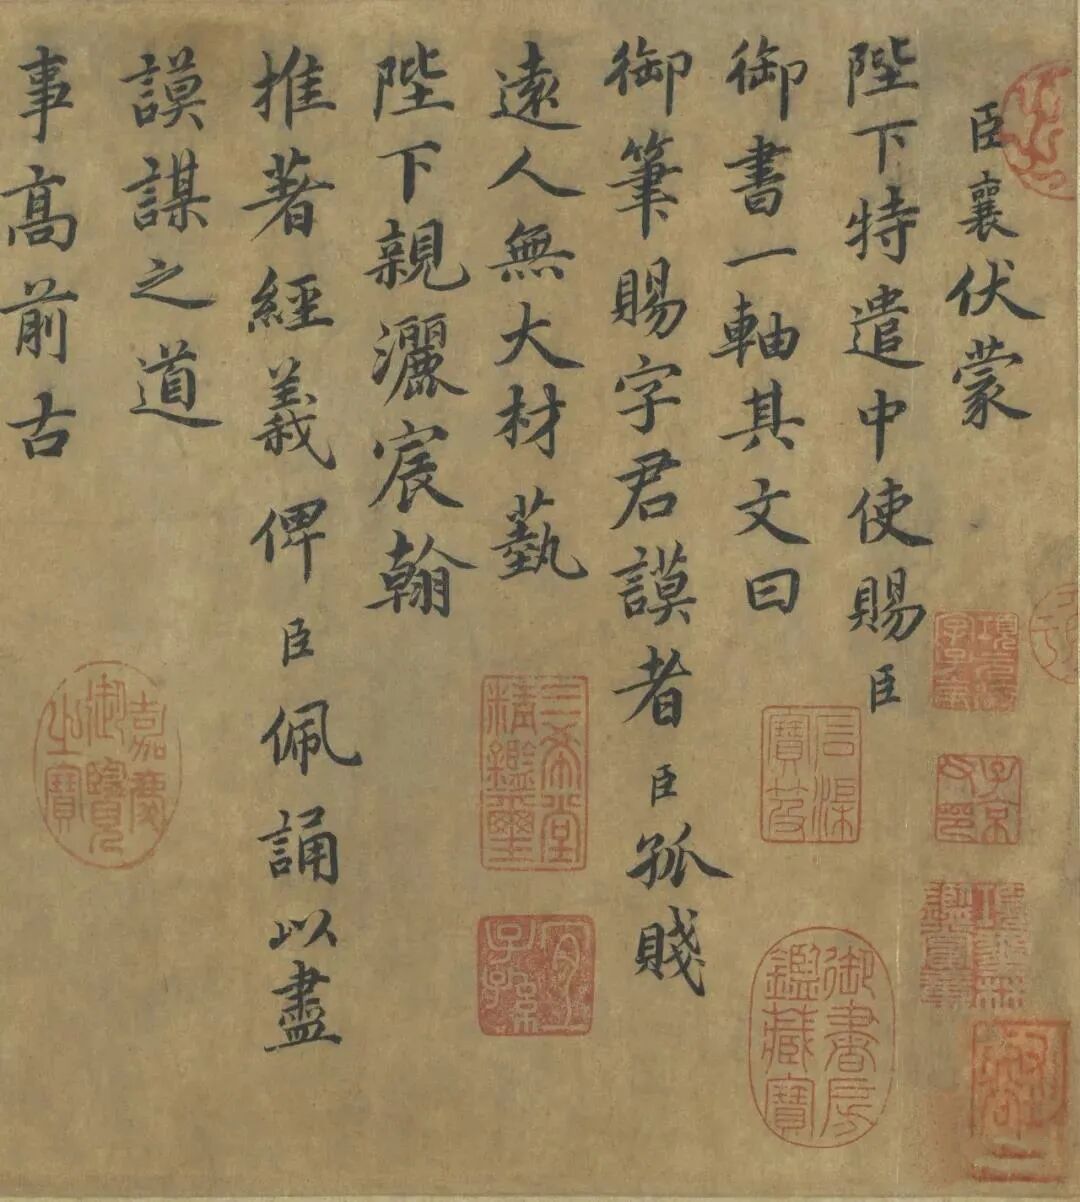 臣襄伏蒙
陛下特遣中使賜臣
御書一軸其文曰
御筆賜字君謨者臣孤賤
遠人無大材藝
陛下親灑宸翰
推著經義俾臣佩誦以盡
謨謀之道
事高前古
子京父印
石渠寶笈
御書房鑑藏寶
三希堂精鑑璽
宜子孫
嘉慶御覽之寶